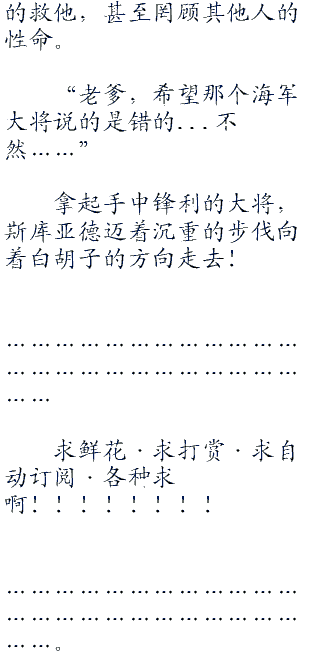 的救他，甚至罔顾其他人的
性命。
“老爹，希望那个海军
大将说的是错的...不
然……”
拿起手中锋利的大将，
斯库亚德迈着沉重的步伐向
着白胡子的方向走去！
…………………………………
…………………………………
……
求鲜花·求打赏·求自
动订阅·各种求
啊！！！！！！！！
…………………………………
…………………………………
……。